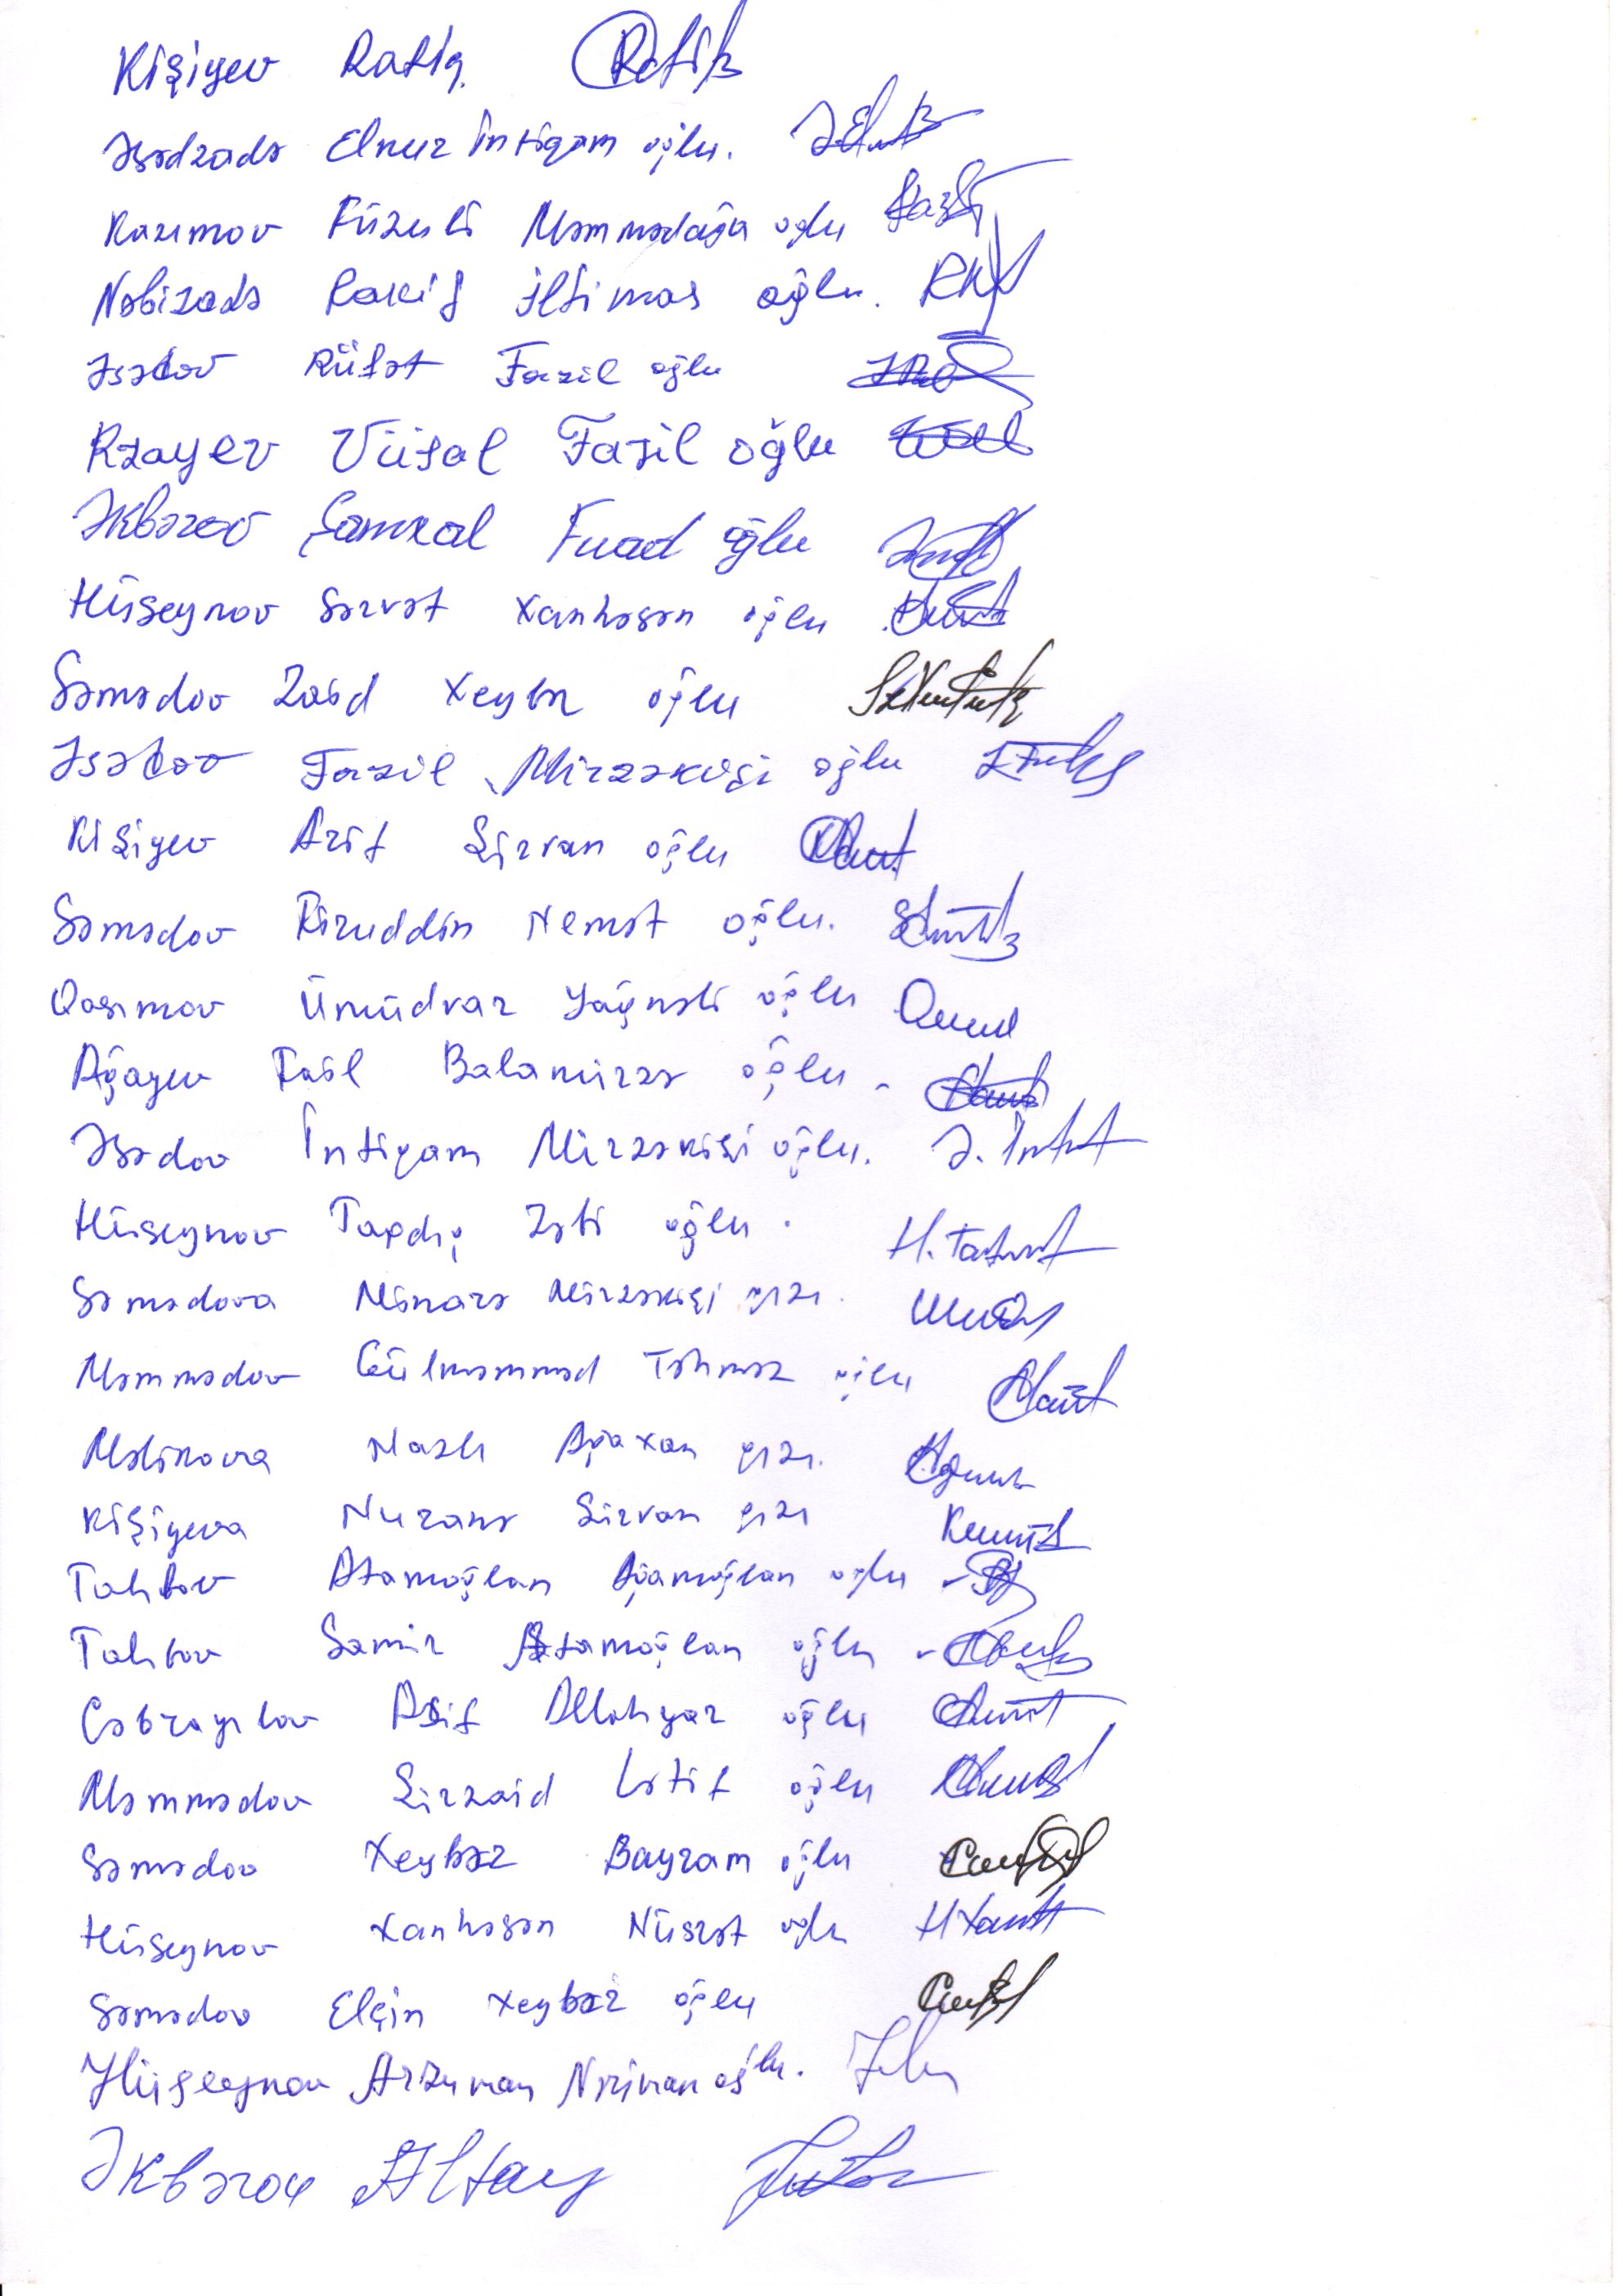 Kişiyev Rafiq
Əsədzadə Elnur İntiqam oğlu.
Kazımov Füzuli Məmmədağa oğlu
Nəbizadə Rakif İltimas oğlu.
Əsədov Rüfət Fazil oğlu
Rzayev Vüsal Fazil oğlu
Əkbərov Şamxal Fuad oğlu
Hüseynov Sərvət Xanhəsən oğlu
Səmədov Zaid Xeybər oğlu
Əsədov Fazil Mirzəkişi oğlu
Kişiyev Arif Şirvan oğlu
Səmədov Nemət oğlu.
Qasımov Ümüdvar oğlu
Ağayev Balamirzə oğlu
Əsədov İntiqam Mirzəkişi oğlu. Ə. İntiq
Hüseynov Tapdıq oğlu. H. Tapd
Səmədova Minarə Mirzəkişi qızı.
Məmmədov Gülməmməd Təhməz oğlu
Məlikova Nazlı Ağaxan qızı.
Kişiyeva Nuranə Şirvan qızı
Talıbov Atamoğlan Ağamoğlan oğlu
Talıbov Samir Atamoğlan oğlu
Cəbrayılov Asif Allahyar oğlu
Məmmədov Şirzaid Lətif oğlu
Səmədov Xeybər Bayram oğlu
Hüseynov Xanhəsən Nüsrət oğlu
Səmədov Elçin Xeybər oğlu
Hüseynov Arzuman Nəriman oğlu.
Əkbərov Altay